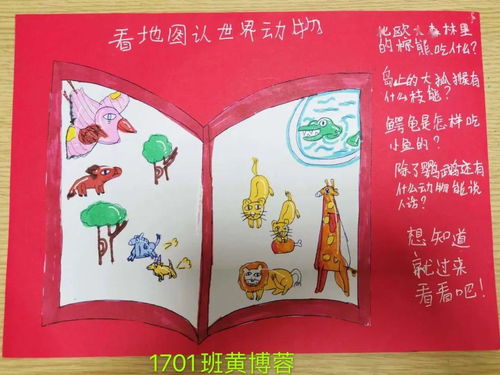 看地图认世界动物
北欧大森林里
的棕熊吃什么?
岛上的大狐猴有
什么技能?
鳄龟是怎样吃
小鱼的?
除了鹦鹉还有
什么动物能说
人话?
想知道
就过来
看看吧!
1701班黄博蓉